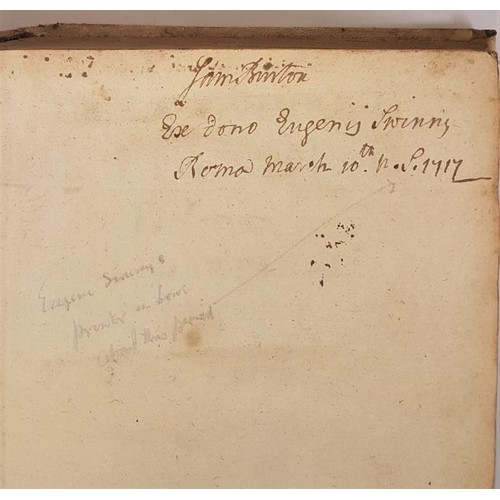 Sam Burton
Ex dono Eugenij Swinny
Roma March 10th. N. S. 1717
Eugene Swinny
printer in
about this period